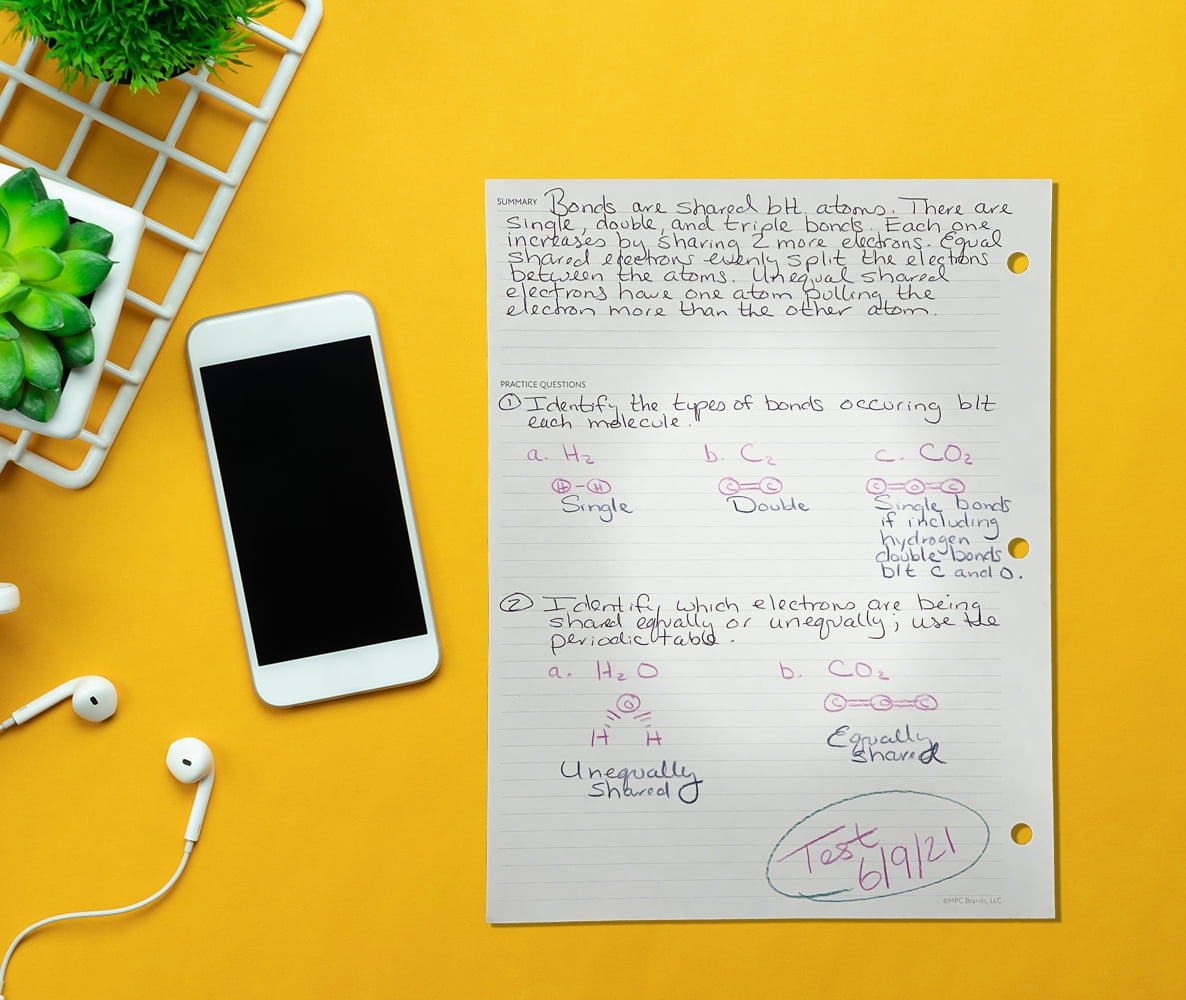 SUMMARY Bonds are shared btt atoms. There are
single, double, and triple bonds. Each one
increases by sharing 2 more electrons. Equal
shared electrons evenly split the electrons
between the atoms. Unequal shared
electrons have one atom pulling the
electron more than the other atom.
PRACTICE QUESTIONS
① Identify the types of bonds occuring b/t
each molecule.
a. H₂ b. C₂ c. CO₂
H - H C = C C = O = C
Single Double Single bonds
if including
hydrogen
double bonds
b/t C and O.
② Identify which electrons are being
shared equally or unequally; use the
periodic table.
a. H₂O b. CO₂
O C = O = C
H H
Equally
shared
Unequally
shared
Test
6/9/21
©MPC Brands, LLC